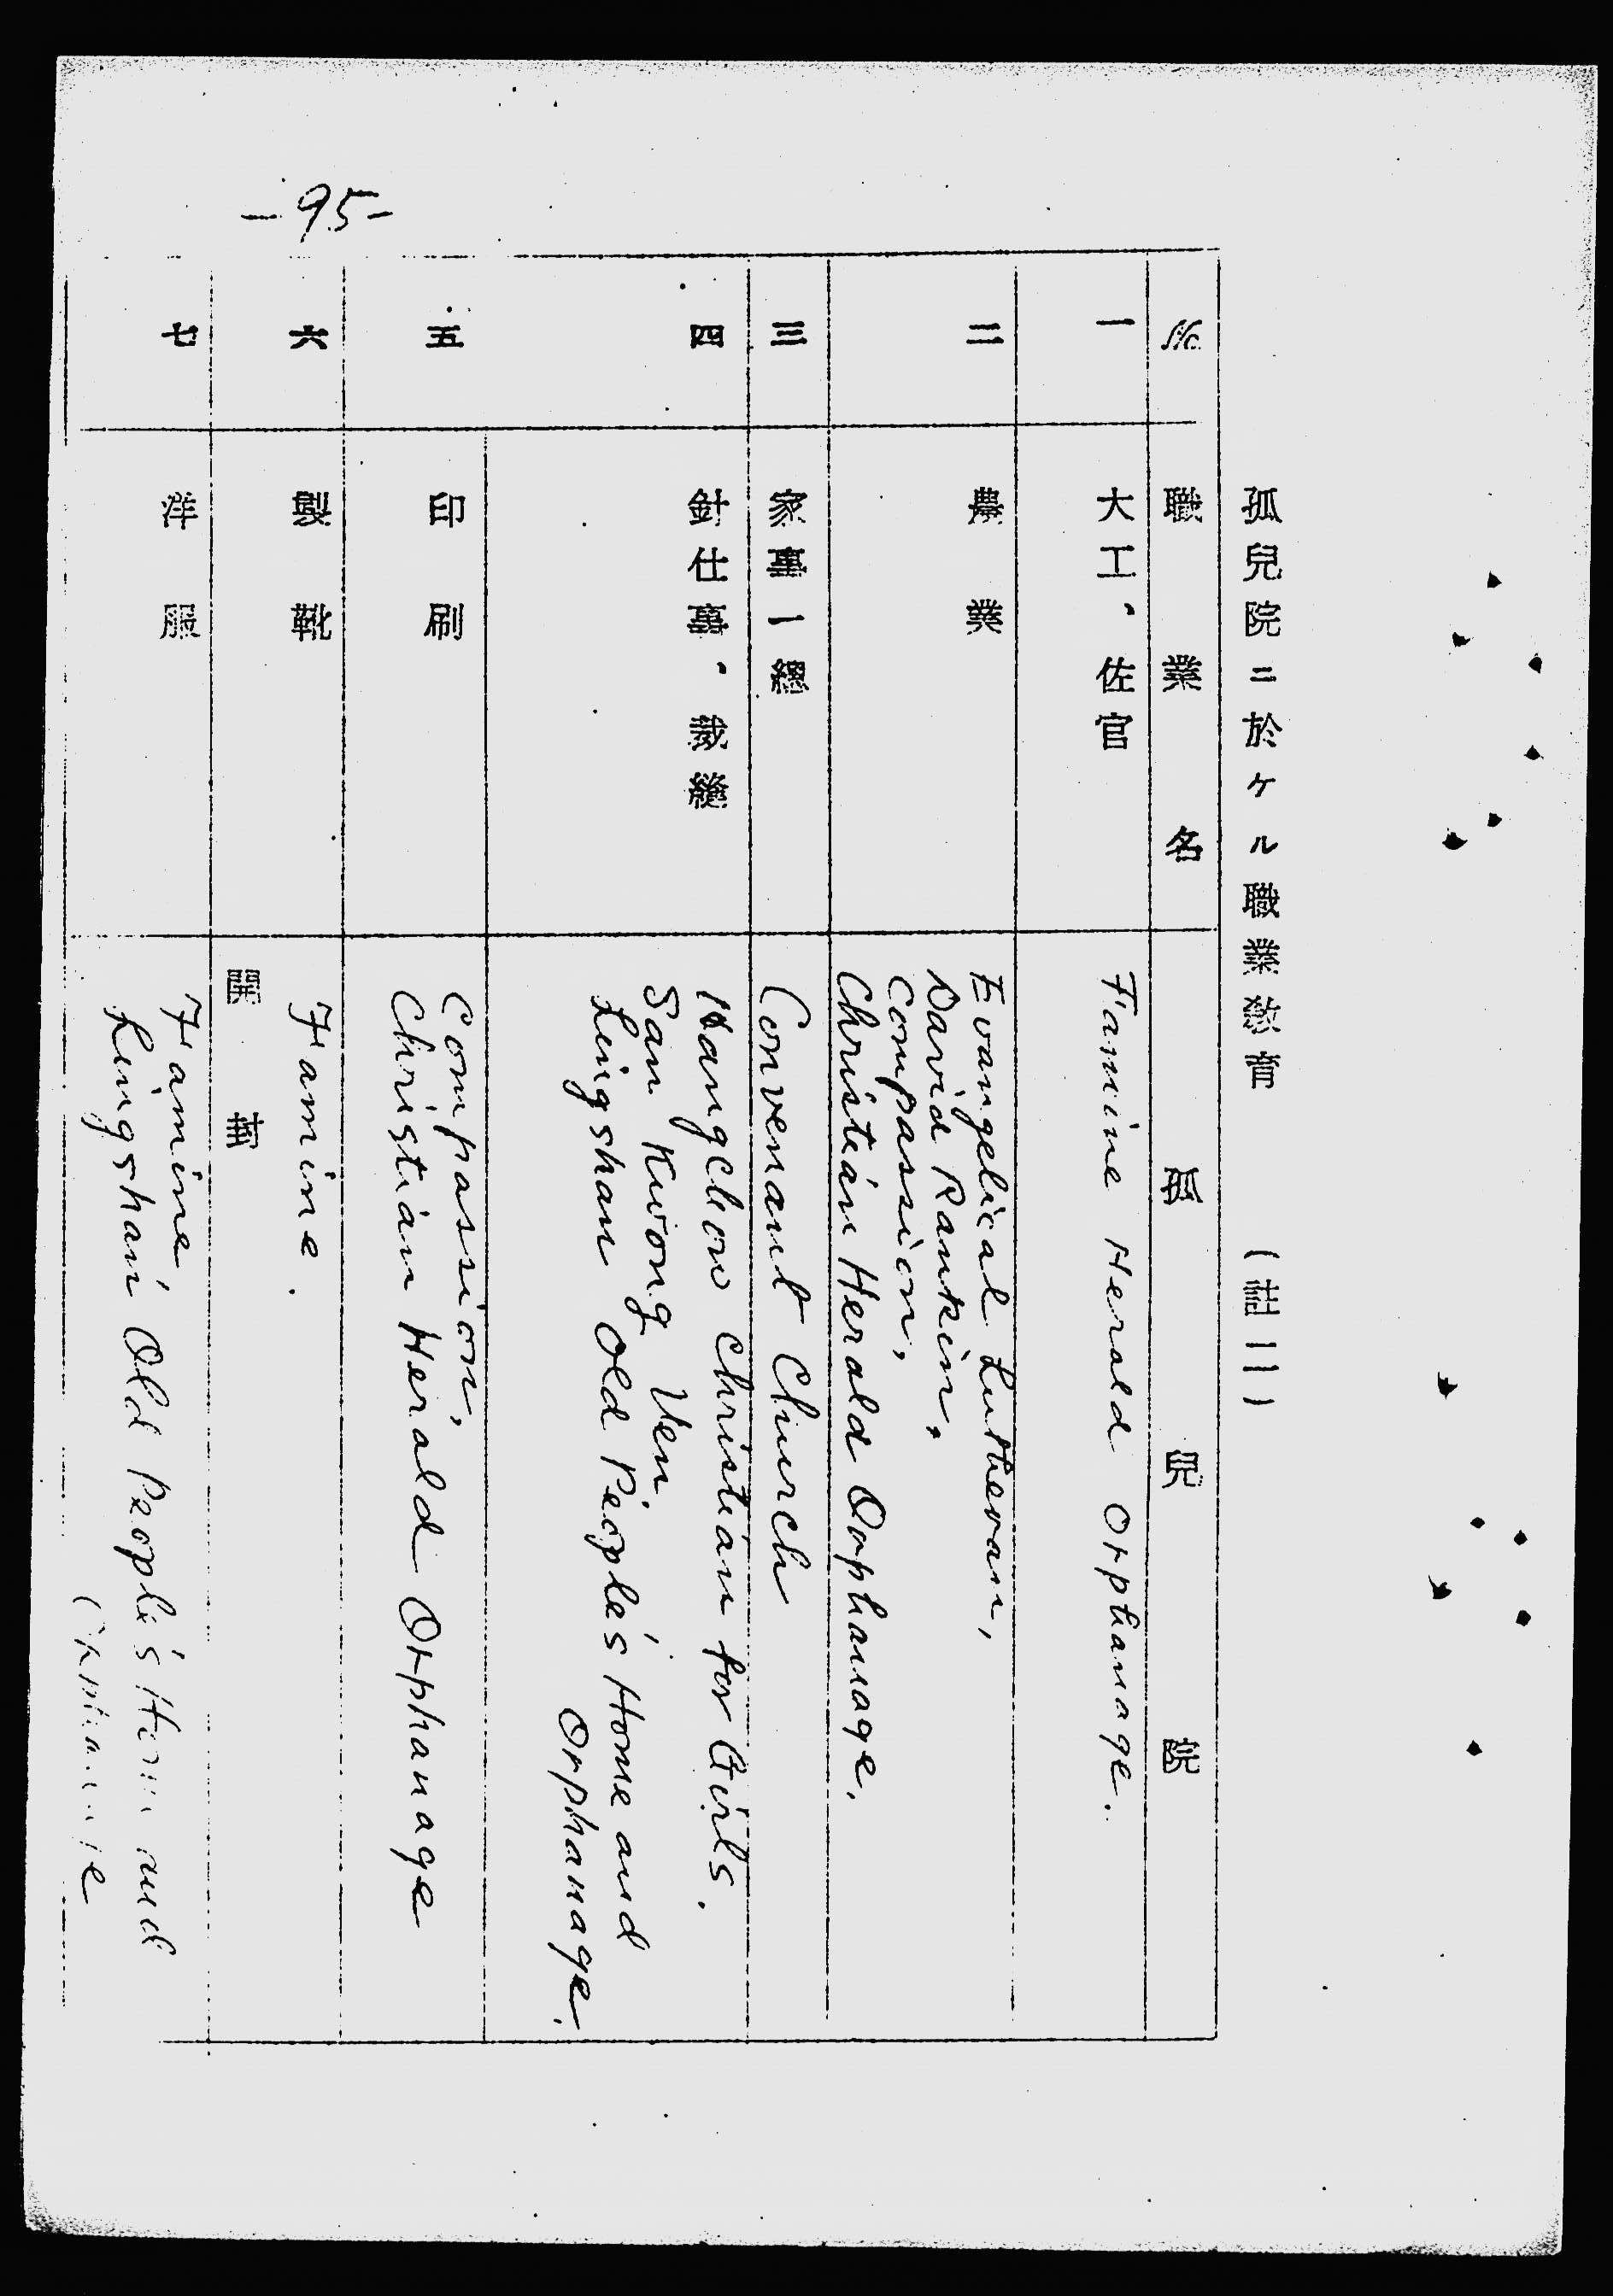 -95-
孤兒院ニ於ケル職業教育 (註二)
No. 職業名 孤兒院
一 大工、佐官 Famine Herald Orphanage.
二 農業 Evangelical Lutheran,
David Rankin,
Compassion,
Christian Herald Orphanage.
三 家事一總 Convenant Church
四 針仕事、裁縫 Hangchow Christian for Girls.
San Kwong Yen.
Lingshan Old People's Home and
Orphanage.
五 印刷 Compassion,
Christian Herald Orphanage
六 製靴 Famine.
開封
七 洋服 Famine,
Lingshan Old People's Home and
Orphanage